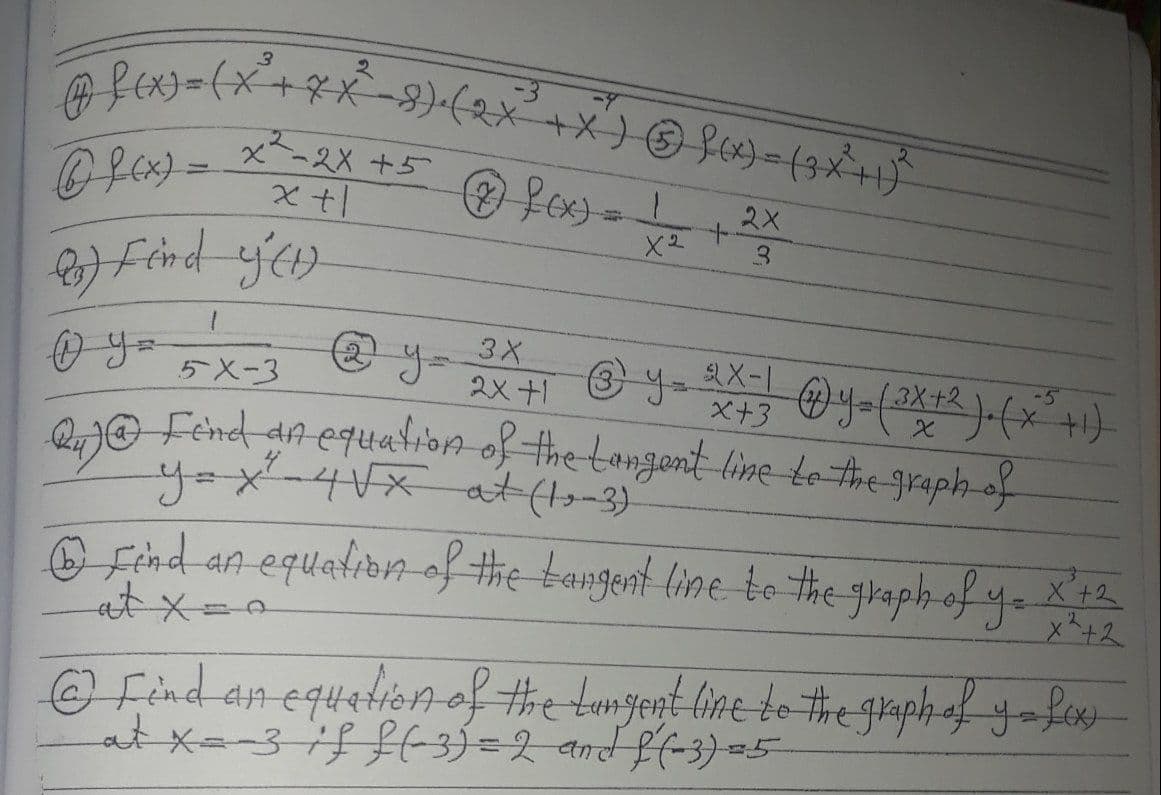 ④ f(x)=(x³+7x²-8)·(2x⁻³+x⁻⁴) ⑤ f(x)=(3x²+1)²
⑥ f(x)= (x²-2x+5)/(x+1) ⑦ f(x)= 1/x² + 2x/3
Q₃) Find y'(1)
① y= 1/(5x-3) ② y= 3x/(2x+1) ③ y= (2x-1)/(x+3) ④ y=((3x+2)/x)·(x⁻⁵+1)
Q₄) ⓐ Find an equation of the tangent line to the graph of
y=x⁴-4√x at (1,-3)
ⓑ Find an equation of the tangent line to the graph of y= (x³+2)/(x²+2)
at x=0
ⓒ Find an equation of the tangent line to the graph of y=f(x)
at x=-3 if f(-3)=2 and f'(-3)=5